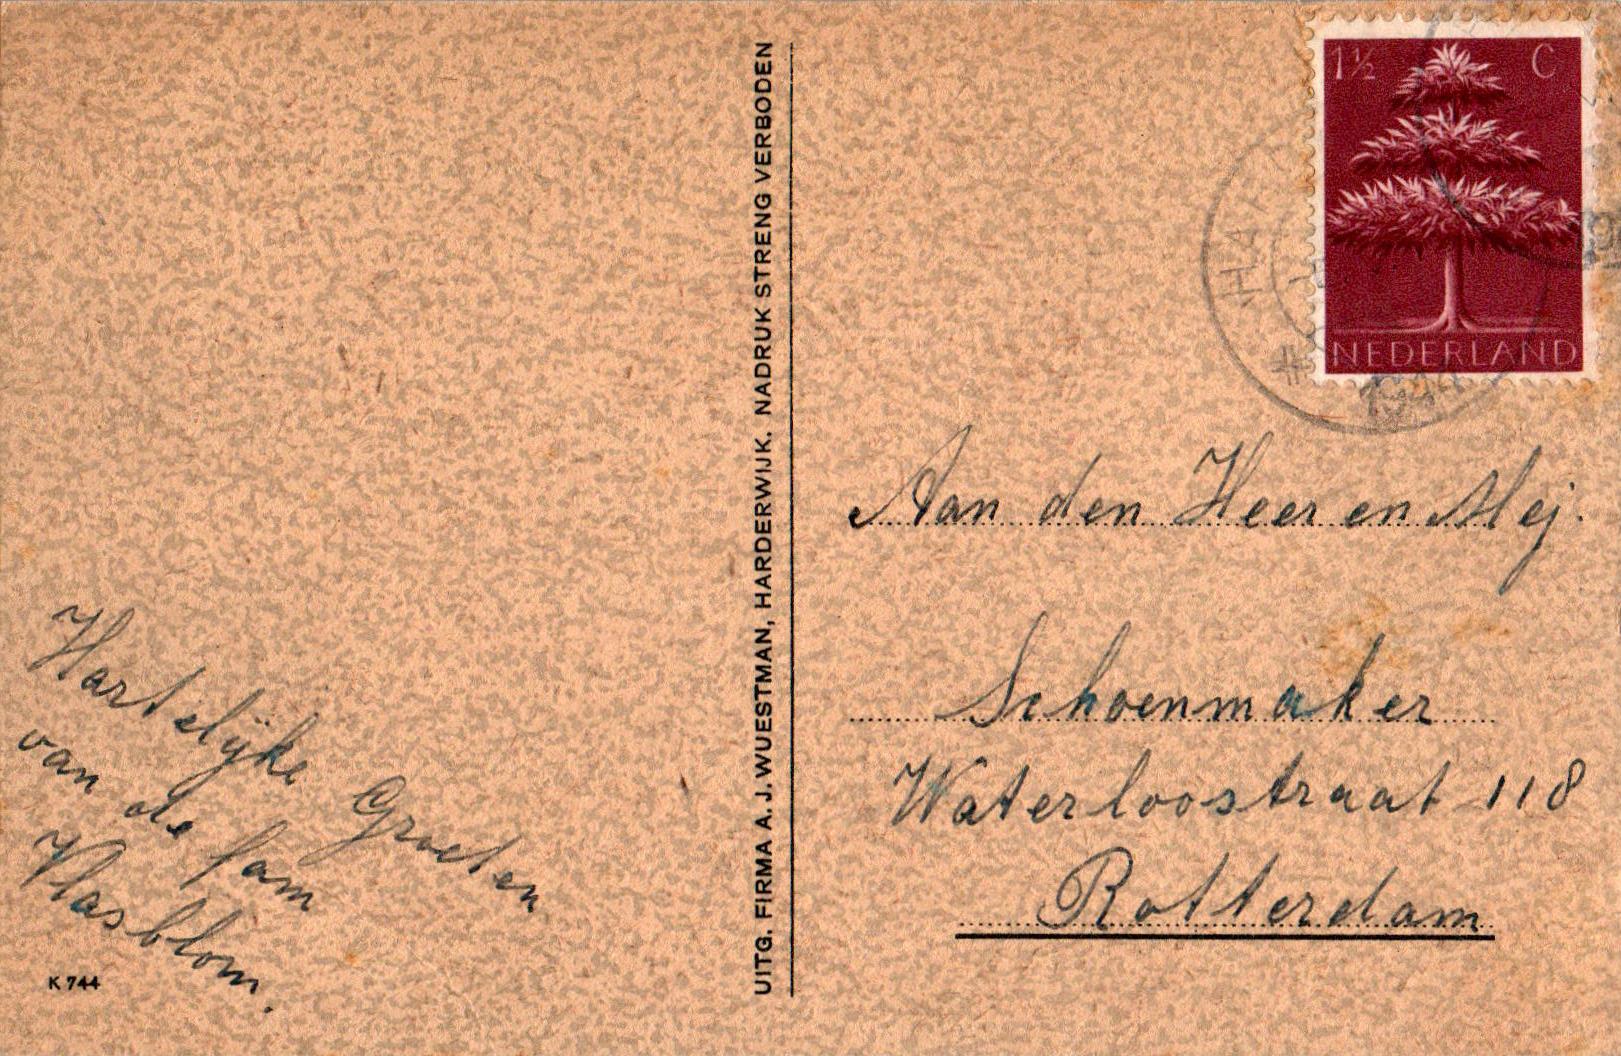 Hartelijke Groeten
van de fam
Vlasblom.
K 744
UITG. FIRMA A. J. WUESTMAN, HARDERWIJK. NADRUK STRENG VERBODEN
1½ C
NEDERLAND
Aan den Heer en Mej.
Schoenmaker
Waterloostraat 118
Rotterdam